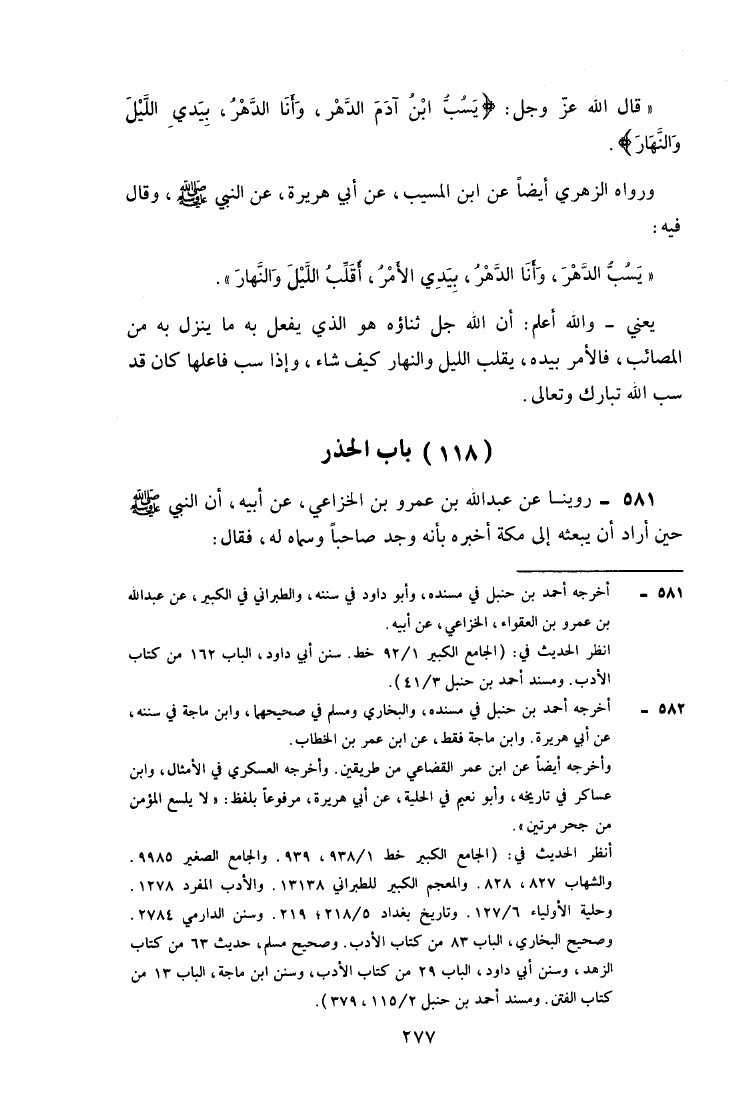 « قال الله عزّ وجل: ﴿يَسُبُّ ابْنُ آدَمَ الدَّهْر، وَأَنَا الدَّهْرُ، بِيَدي اللَّيْلَ
وَالنَّهَارَ﴾.
ورواه الزهري أيضاً عن ابن المسيب، عن أبي هريرة، عن النبي ﷺ، وقال
فيه:
« يَسُبُّ الدَّهْرَ، وَأَنَا الدَّهْرُ، بِيَدِي الأَمْرُ، أُقَلِّبُ اللَّيْلَ وَالنَّهارَ ».
يعني - والله أعلم: أن الله جل ثناؤه هو الذي يفعل به ما ينزل به من
المصائب، فالأمر بيده، يقلب الليل والنهار كيف شاء، وإذا سب فاعلها كان قد
سب الله تبارك وتعالى.
(١١٨) باب الحذر
٥٨١ - روينا عن عبدالله بن عمرو بن الخزاعي، عن أبيه، أن النبي ﷺ
حين أراد أن يبعثه إلى مكة أخبره بأنه وجد صاحباً وسماه له، فقال:
٥٨١ - أخرجه أحمد بن حنبل في مسنده، وأبو داود في سننه، والطبراني في الكبير، عن عبدالله
بن عمرو بن العقواء، الخزاعي، عن أبيه.
انظر الحديث في: (الجامع الكبير ٩٢/١ خط. سنن أبي داود، الباب ١٦٢ من كتاب
الأدب. ومسند أحمد بن حنبل ٤١/٣).
٥٨٢ - أخرجه أحمد بن حنبل في مسنده، والبخاري ومسلم في صحيحهما، وابن ماجة في سننه،
عن أبي هريرة. وابن ماجة فقط، عن ابن عمر بن الخطاب.
وأخرجه أيضاً عن ابن عمر القضاعي من طريقين. وأخرجه العسكري في الأمثال، وابن
عساكر في تاريخه، وأبو نعيم في الحلية، عن أبي هريرة، مرفوعاً بلفظ: « لا يلسع المؤمن
من جحر مرتين ».
أنظر الحديث في: (الجامع الكبير خط ٩٣٨/١، ٩٣٩. والجامع الصغير ٩٩٨٥.
والشهاب ٨٢٧، ٨٢٨. والمعجم الكبير للطبراني ١٣١٣٨. والأدب المفرد ١٢٧٨.
وحلية الأولياء ١٢٧/٦. وتاريخ بغداد ٢١٨/٥؛ ٢١٩. وسنن الدارمي ٢٧٨٤.
وصحيح البخاري، الباب ٨٣ من كتاب الأدب. وصحيح مسلم، حديث ٦٣ من كتاب
الزهد، وسنن أبي داود، الباب ٢٩ من كتاب الأدب، وسنن ابن ماجة، الباب ١٣ من
كتاب الفتن. ومسند أحمد بن حنبل ١١٥/٢، ٣٧٩).
٢٧٧